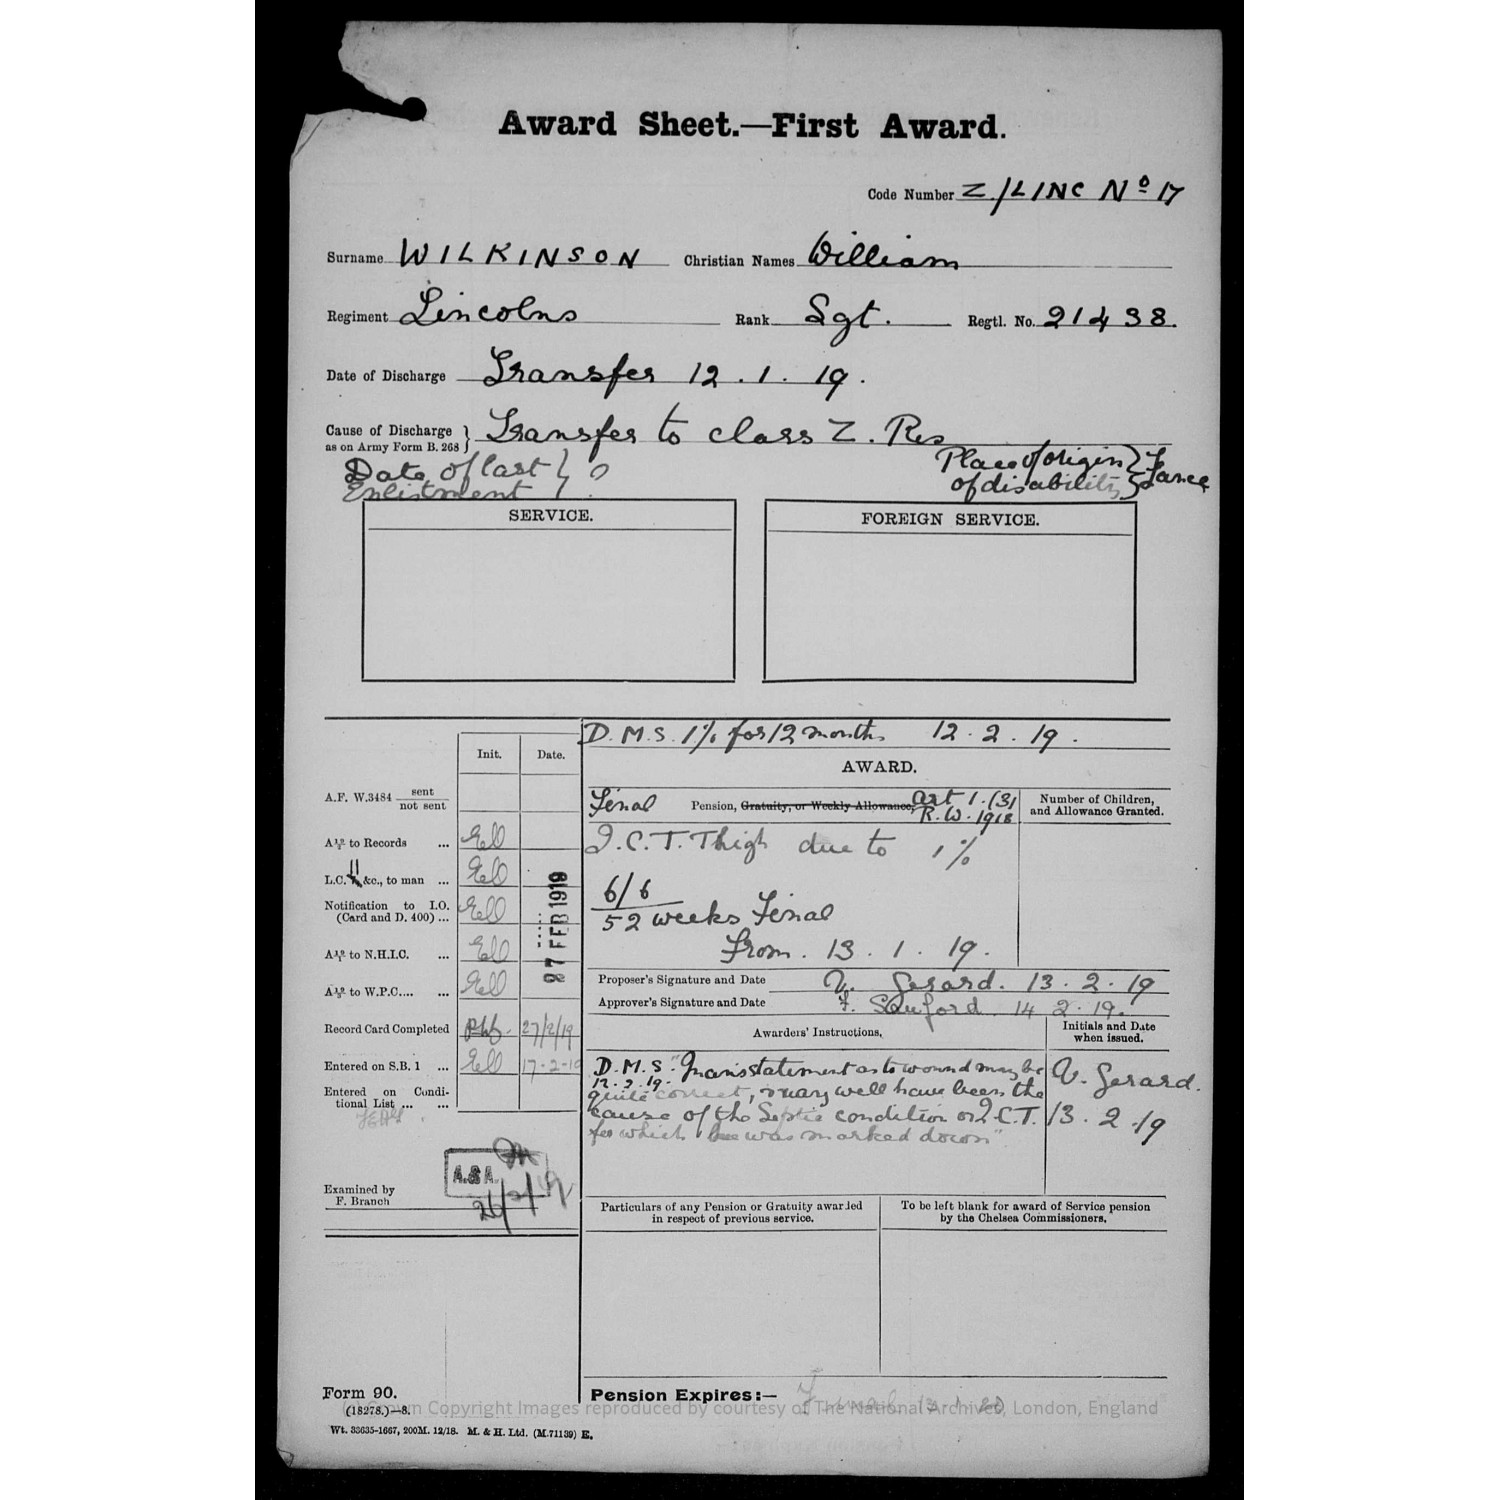 Award Sheet.—First Award.
Code Number Z/LINC Nº 17
Surname WILKINSON Christian Names William
Regiment Lincolns Rank Sgt. Regtl. No. 21438.
Date of Discharge Transfer 12.1.19.
Cause of Discharge } Transfer to class Z. Res
as on Army Form B. 268
Date of last } ?
Enlistment
Place of origin }
of disability
SERVICE.
FOREIGN SERVICE.
D.M.S. 1% for 12 months 12.2.19.
Init. Date.
AWARD.
A.F. W.3484 sent
not sent
Final Pension, Gratuity, or Weekly Allowance, Art 1.(3)
R.W. 1918
Number of Children,
and Allowance Granted.
to Records ...
I.C.T. Thigh due to 1%
L.C. &c., to man ...
6/6
Notification to I.O.
(Card and D. 400) ...
52 weeks Final
From. 13.1.19.
to N.H.I.C. ...
to W.P.C.... ...
27 FEB 1919
Proposer's Signature and Date V. Gerard. 13.2.19
Approver's Signature and Date F. 14 2.19.
Record Card Completed 27/2/19
Awarders' Instructions.
Initials and Date
when issued.
Entered on S.B. 1 ... 17-2-19
Entered on Condi-
tional List ... ...
D.M.S "Mans statement as to wound may be
12.2.19.
quite correct, & may well have been the
cause of the Septic condition or I.C.T.
for which he was marked down"
V. Gerard.
13.2.19
A.&A.
26/2/19
Examined by
F. Branch
Particulars of any Pension or Gratuity awarded
in respect of previous service.
To be left blank for award of Service pension
by the Chelsea Commissioners.
Form 90.
(18278.)—8.
Wt. 33635-1667, 200M. 12/18. M. & H. Ltd. (M.71139) E.
Pension Expires:— Final 13 1 20
(c) Crown Copyright Images reproduced by courtesy of The National Archives, London, England